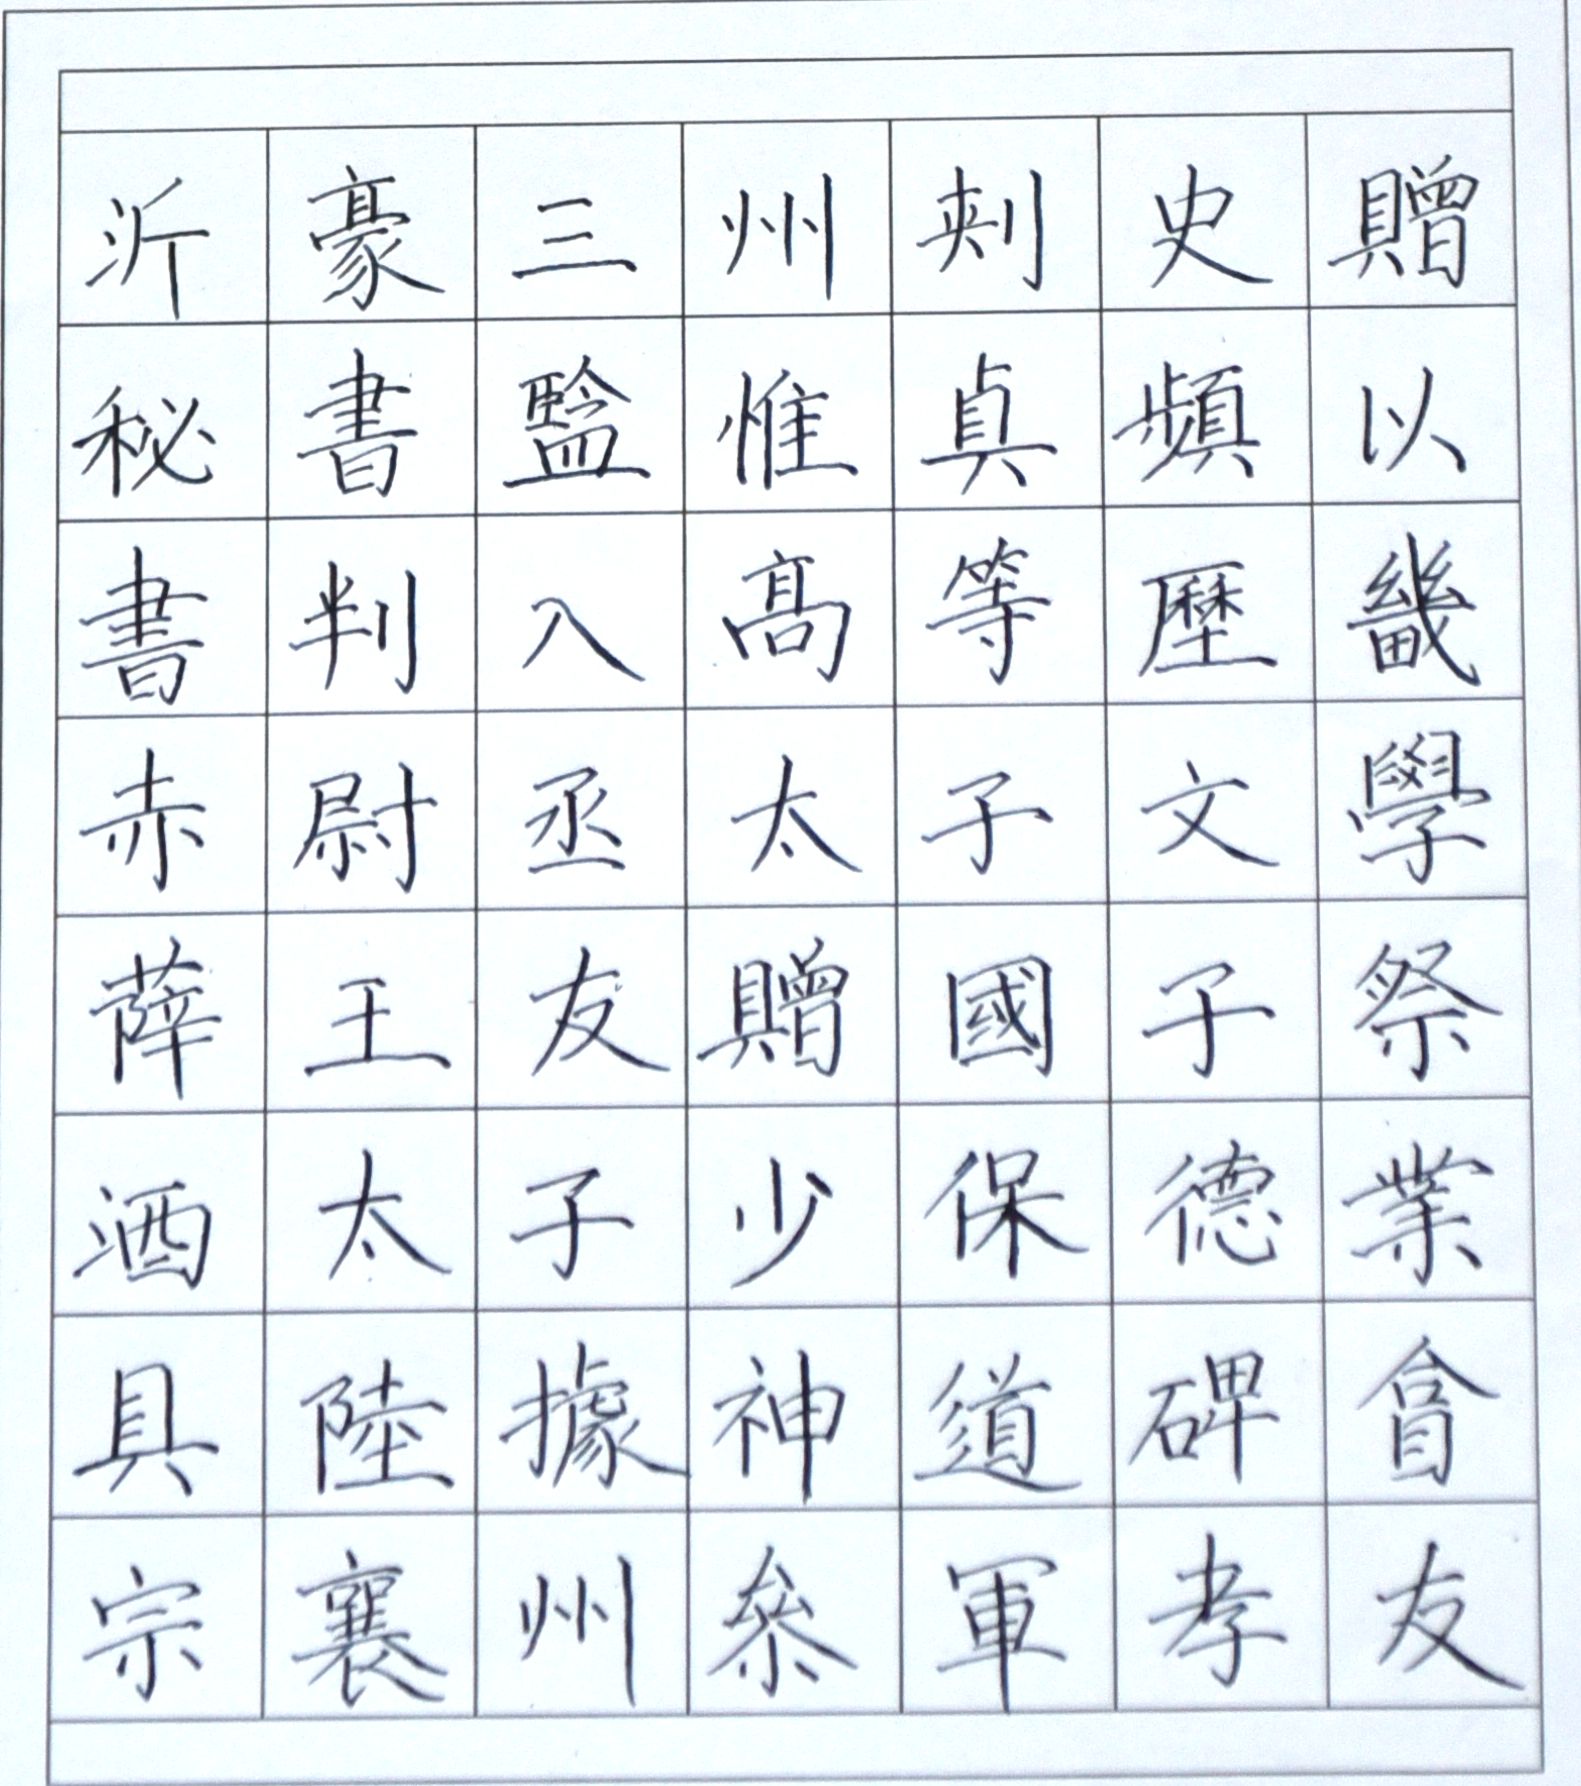 沂豪三州刺史贈
秘書監惟貞頻以
書判入高等歷畿
赤尉丞太子文學
薛王友贈國子祭
酒太子少保德業
具陸據神道碑會
宗襄州參軍孝友